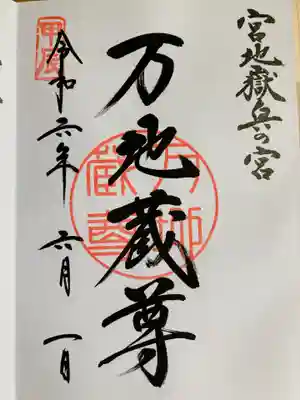 宮地嶽奥の宮
万地蔵尊
令和六年 六月 一日
甲辰